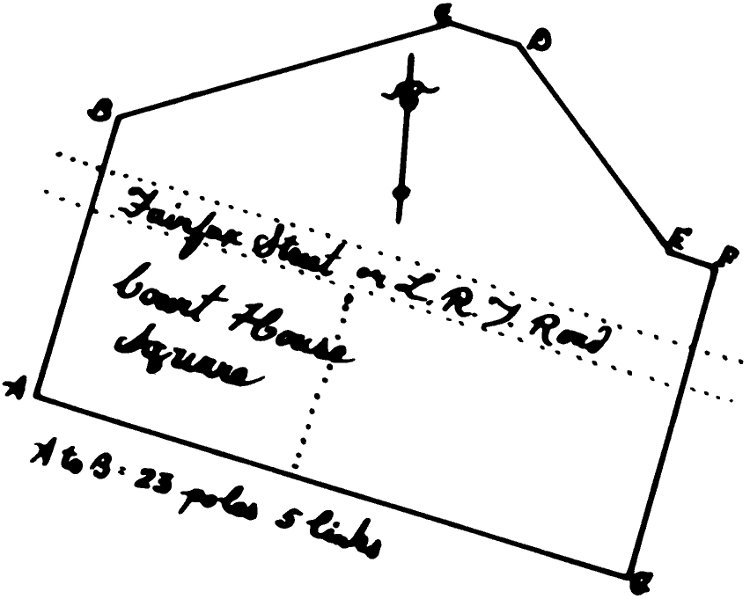 C
D
B
E
F
Fairfax Street or L. R. T Road
Court House
Square
A
A to B = 23 poles 5 links
G